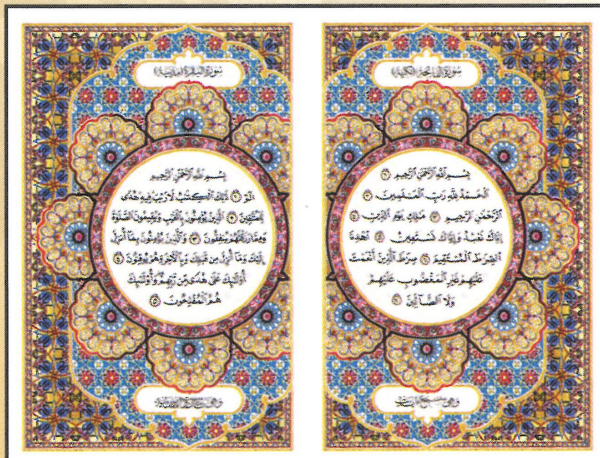 سورة الفاتحة (مكية)
بِسْمِ ٱللَّهِ ٱلرَّحْمَٰنِ ٱلرَّحِيمِ ١
ٱلْحَمْدُ لِلَّهِ رَبِّ ٱلْعَٰلَمِينَ ٢
ٱلرَّحْمَٰنِ ٱلرَّحِيمِ ٣ مَٰلِكِ يَوْمِ ٱلدِّينِ ٤
إِيَّاكَ نَعْبُدُ وَإِيَّاكَ نَسْتَعِينُ ٥ ٱهْدِنَا
ٱلصِّرَٰطَ ٱلْمُسْتَقِيمَ ٦ صِرَٰطَ ٱلَّذِينَ أَنْعَمْتَ
عَلَيْهِمْ غَيْرِ ٱلْمَغْضُوبِ عَلَيْهِمْ
وَلَا ٱلضَّآلِّينَ ٧
وهي سبع آيات
سورة البقرة (مدنية)
بِسْمِ ٱللَّهِ ٱلرَّحْمَٰنِ ٱلرَّحِيمِ
الٓمٓ ١ ذَٰلِكَ ٱلْكِتَٰبُ لَا رَيْبَ فِيهِ هُدًى
لِّلْمُتَّقِينَ ٢ ٱلَّذِينَ يُؤْمِنُونَ بِٱلْغَيْبِ وَيُقِيمُونَ ٱلصَّلَوٰةَ
وَمِمَّا رَزَقْنَٰهُمْ يُنفِقُونَ ٣ وَٱلَّذِينَ يُؤْمِنُونَ بِمَآ أُنزِلَ
إِلَيْكَ وَمَآ أُنزِلَ مِن قَبْلِكَ وَبِٱلْءَاخِرَةِ هُمْ يُوقِنُونَ ٤
أُو۟لَٰٓئِكَ عَلَىٰ هُدًى مِّن رَّبِّهِمْ وَأُو۟لَٰٓئِكَ
هُمُ ٱلْمُفْلِحُونَ ٥
وهي